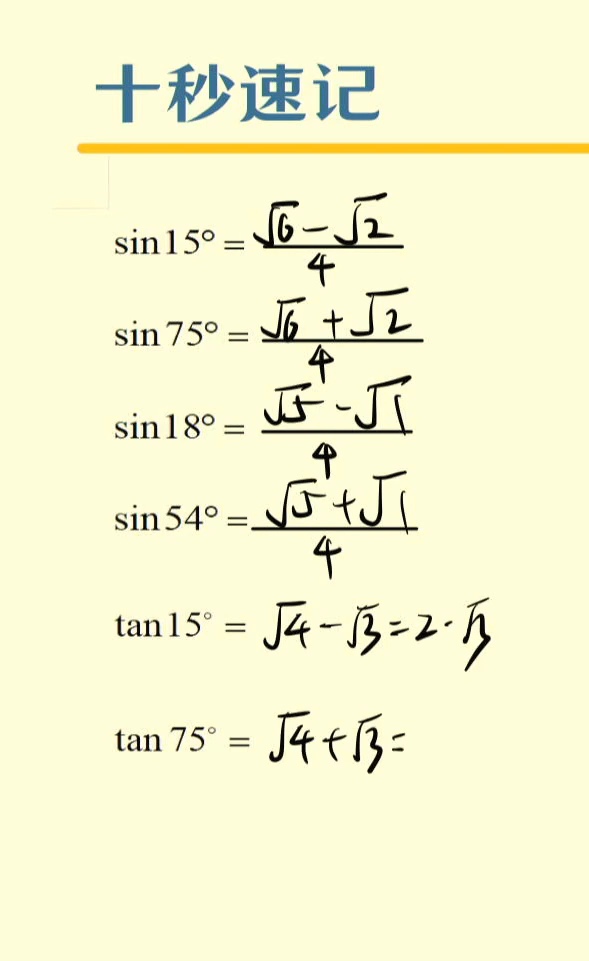 十秒速记
sin15° = (√6 - √2)/4
sin75° = (√6 + √2)/4
sin18° = (√5 - √1)/4
sin54° = (√5 + √1)/4
tan15° = √4 - √3 = 2 - √3
tan75° = √4 + √3 =